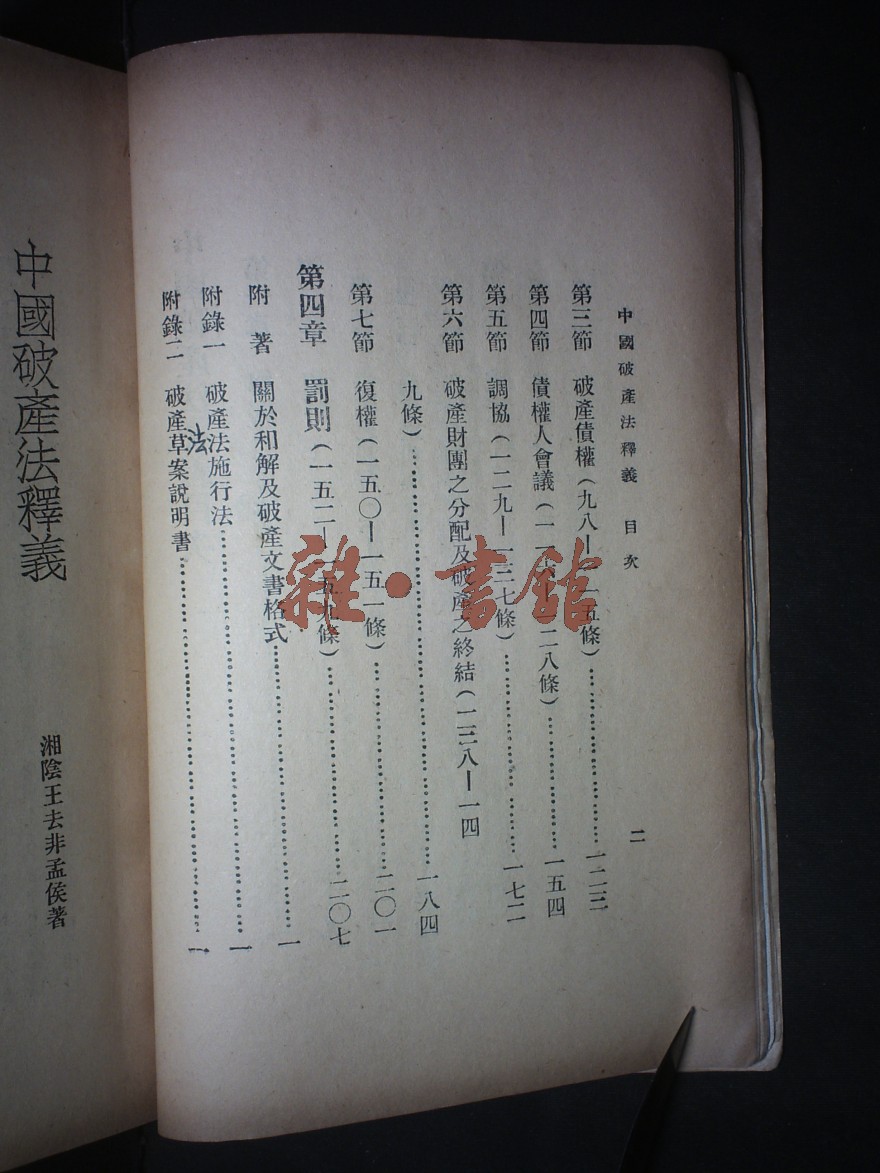 中國破產法釋義 目次
二
第三節 破產債權(九八—一一五條)……一二三
第四節 債權人會議(一一六—一二八條)……一五四
第五節 調協(一二九—一三七條)……一七二
第六節 破產財團之分配及破產之終結(一三八—一四
九條)……一八四
第七節 復權(一五〇—一五一條)……二〇一
第四章 罰則(一五二—一五九條)……二〇七
附 著 關於和解及破產文書格式……一
附錄一 破產法施行法……一
附錄二 破產法草案說明書……一
中國破產法釋義
湘陰王去非孟侯著
雜·書館